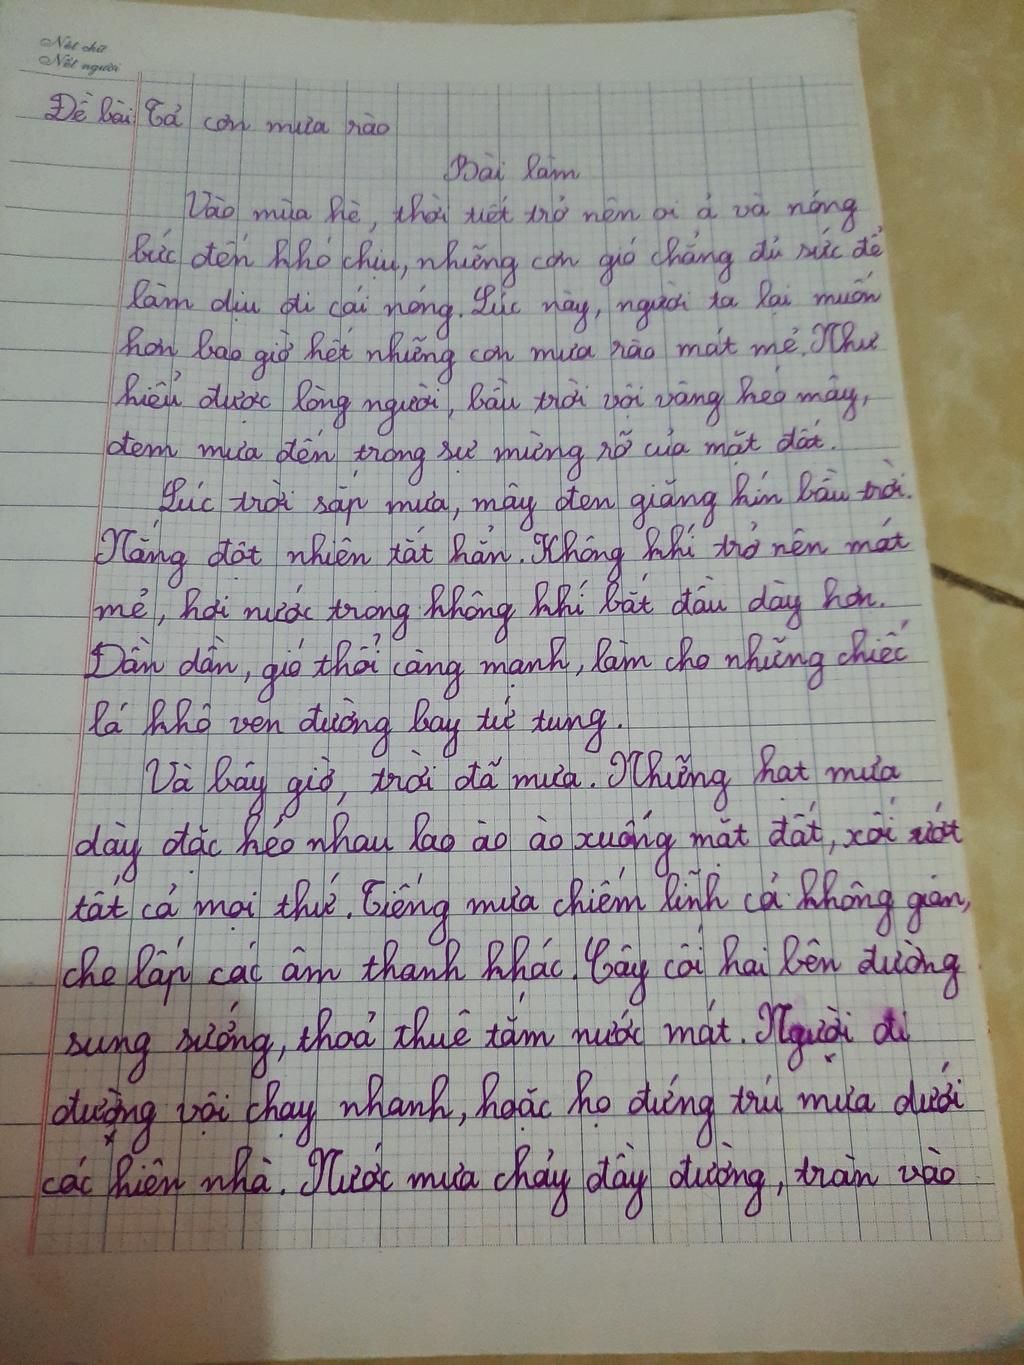 Nét chữ
Nết người
Đề bài: Tả cơn mưa rào
Bài làm
Vào mùa hè, thời tiết trở nên oi ả và nóng
bức đến khó chịu, những cơn gió chẳng đủ sức để
làm dịu đi cái nóng. Lúc này, người ta lại muốn
hơn bao giờ hết những cơn mưa rào mát mẻ. Như
hiểu được lòng người, bầu trời vội vàng kéo mây,
đem mưa đến trong sự mừng rỡ của mặt đất.
Lúc trời sắp mưa, mây đen giăng kín bầu trời.
Nắng đột nhiên tắt hẳn. Không khí trở nên mát
mẻ, hơi nước trong không khí bắt đầu dày hơn.
Dần dần, gió thổi càng mạnh, làm cho những chiếc
lá khô ven đường bay tứ tung.
Và bây giờ, trời đã mưa. Những hạt mưa
dày đặc kéo nhau lao ào ào xuống mặt đất, xối xướt
tất cả mọi thứ. Tiếng mưa chiếm lĩnh cả không gian,
che lấp các âm thanh khác. Cây cối hai bên đường
sung sướng, thoả thuê tắm nước mát. Người đi
đường vội chạy nhanh, hoặc họ đứng trú mưa dưới
các hiên nhà. Nước mưa chảy đầy đường, tràn vào